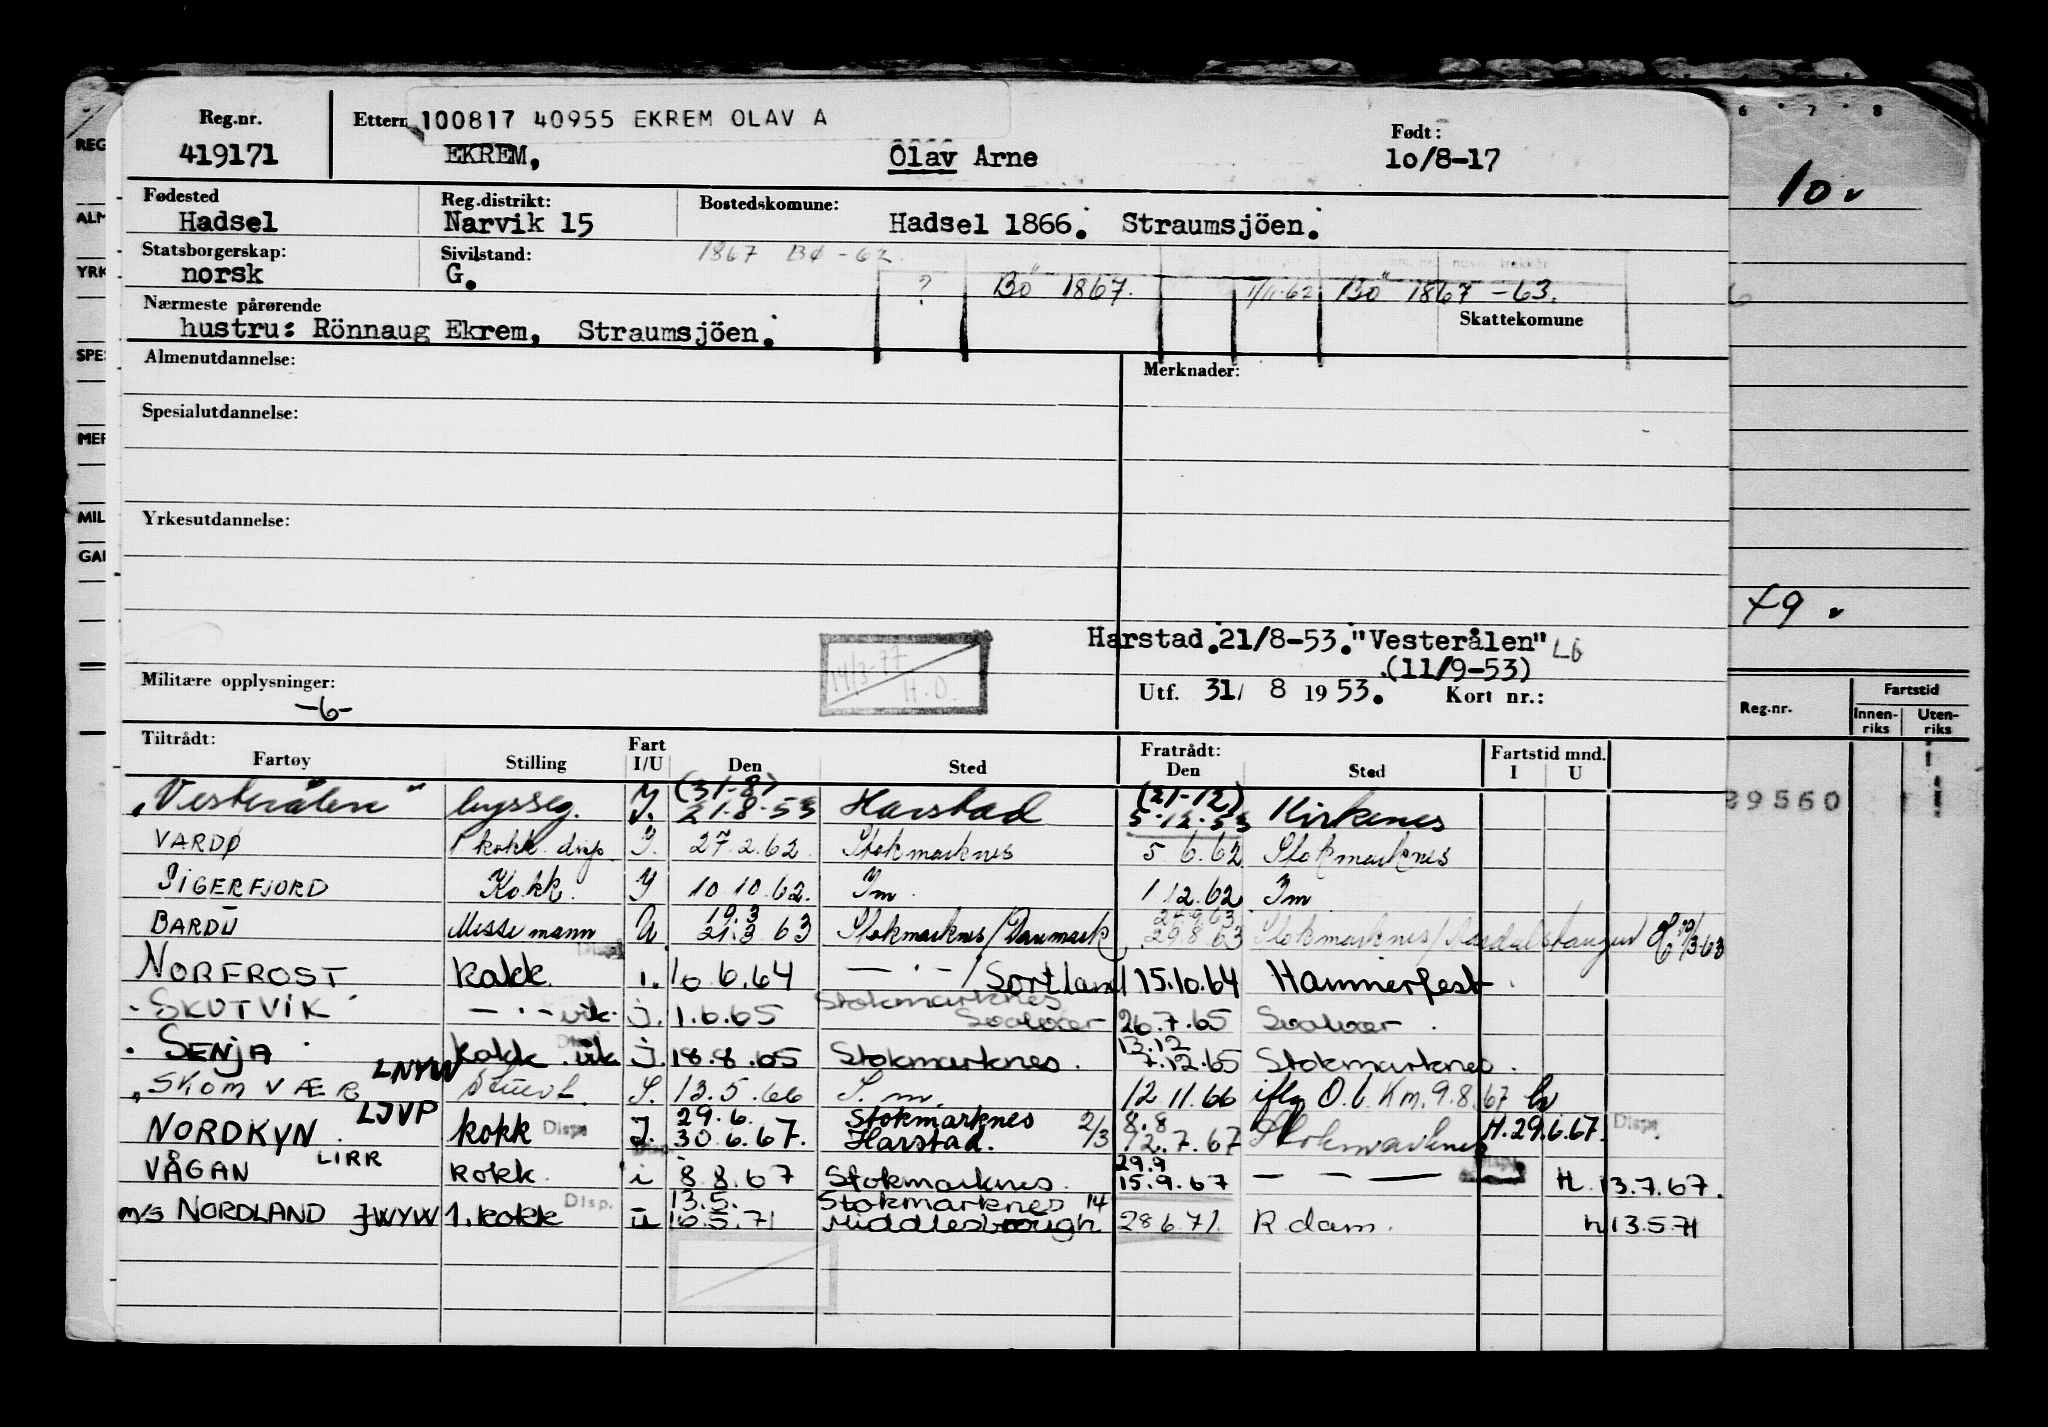 Reg.nr. Ettern 100817 40955 EKREM OLAV A Født:
419171 EKREM, Olav Arne 10/8-17
Fødested Reg.distrikt: Bostedskomune:
Hadsel Narvik 15 Hadsel 1866. Straumsjöen.
Statsborgerskap: Sivilstand: 1867 Bø -62.
norsk G. ? Bö 1867. 1/11-62 Bö 1867 -63.
Nærmeste pårørende Skattekomune
hustru: Rönnaug Ekrem, Straumsjöen.
Almenutdannelse: Merknader:
Spesialutdannelse:
Yrkesutdannelse:
Harstad.21/8-53."Vesterålen"
14/3-77 H.O. (11/9-53)
Militære opplysninger: Utf. 31/ 8 1953. Kort nr.:
-6-
Tiltrådt: Fratrådt: Fartstid mnd.
Fartøy Stilling Fart I/U Den Sted Den Sted I U
(31-8) (21-12)
"Vesterålen" bysseg. I. 21-8-53 Harstad 5-12-53 Kirkenes
VARDØ 1 kokk disp I. 27.2.62 Stokmarknes 5.6.62 Stokmarknes
SIGERFJORD Kokk. I 10.10.62. Im. 1.12.62 Im
19.3
BARDU Messemann U 21.3.63 Stokmarknes/Danmark 29.8.63 Stokmarknes/Årdalstangen
NORFROST kokk. i. 10.6.64 — · — /Sortland 15.10.64 Hammerfest.
Stokmarknes
SKUTVIK — · — vik. i. 1.6.65 Svolvær 26.7.65 Svolvær.
13.12
SENJA kokk vik i. 18.8.65 Stokmarknes. 7.12.65 Stokmarknes.
LNYW
SKOMVÆR I. 13.5.66 S.m. 12.11.66 iflg O.l. Km. 9.8.67
LJVP 29.6. Stokmarknes 2/3 8.8
NORDKYN kokk Disp I. 30.6.67. Harstad. 12.7.67 Stokmarknes H.29.6.67. Disp.
LIRR 29.9
VÅGAN kokk. i 8.8.67 Stokmarknes. 15.9.67 — — — H. 13.7.67.
Disp. 13.5. Stokmarknes 14
m/s NORDLAND JWYW 1. kokk u 16.5.71 Middlesbrough 28.6.71. R.dam. h 13.5.71
REG
ALM
YRK
SPES
MER
MIL
GAI
6 7 8
10.
49.
Reg.nr. Fartstid
Innen-riks Uten-riks
29560